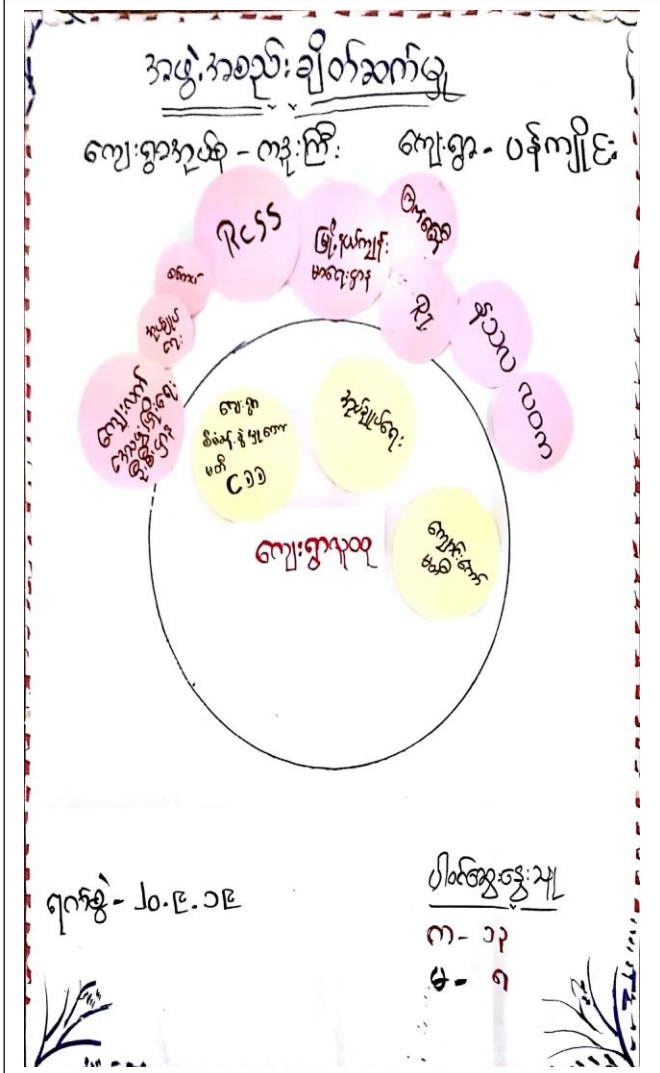 အဖွဲ့အစည်းချိတ်ဆက်မှု
ကျေးရွာအုပ်စု - ကဒူးကြီး ကျေးရွာ - ပန်ကျိုင်း
RCSS
မြို့နယ်ကျန်း
မာရေးဌာန
ကြက်ခြေနီ
RI
နသလ
လဝက
စစ်တပ်
အုပ်ချုပ်
ရေး
ကျေးလက်
ဒေသဖွံ့ဖြိုးရေး
ဦးစီးဌာန
ကျေးရွာ
စီမံခန့်ခွဲမှုကော်
မတီ
CDD
အုပ်ချုပ်ရေး
ကျောင်းကော်
မတီ
ကျေးရွာလူထု
ရက်စွဲ - ၂၀.၉.၁၉
ပါဝင်ဆွေးနွေးသူ
က - ၁၃
မ - ၇